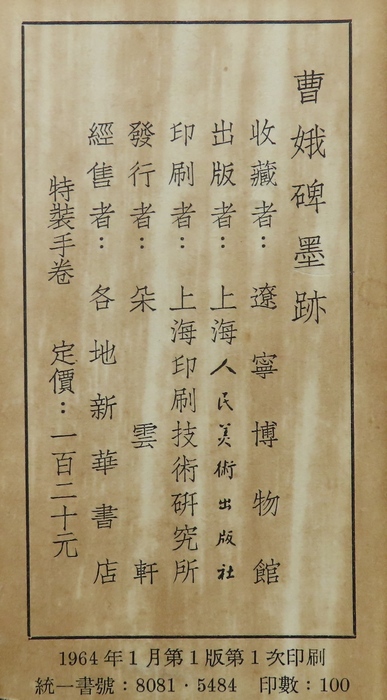 曹娥碑墨跡
收藏者：遼寧博物館
出版者：上海人民美術出版社
印刷者：上海印刷技術研究所
發行者：朵雲軒
經售者：各地新華書店
特裝手卷 定價：一百二十元
1964年1月第1版第1次印刷
統一書號：8081·5484 印數：100